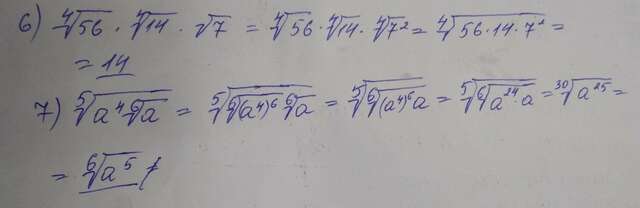 6) ⁴√56 · ⁴√14 · √7 = ⁴√56 · ⁴√14 · ⁴√7² = ⁴√(56·14·7²) =
= 14
7) ⁵√(a⁴ ⁶√a) = ⁵√(⁶√(a⁴)⁶ ⁶√a) = ⁵√(⁶√((a⁴)⁶a)) = ⁵√(⁶√(a²⁴·a)) = ³⁰√a²⁵ =
= ⁶√a⁵